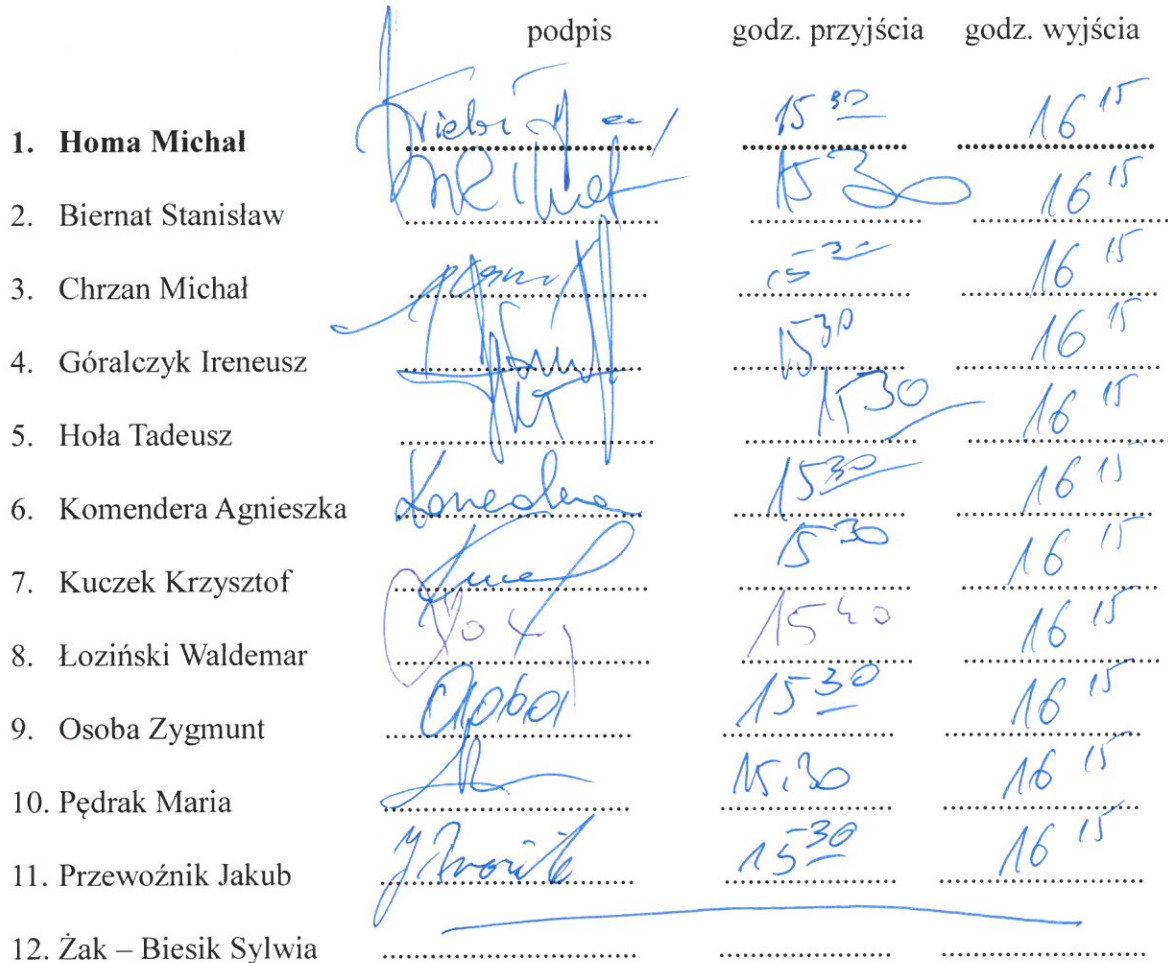 podpis godz. przyjścia godz. wyjścia
1. Homa Michał 15 30 16 15
2. Biernat Stanisław 15 30 16 15
3. Chrzan Michał 15 30 16 15
4. Góralczyk Ireneusz 15 30 16 15
5. Hoła Tadeusz 15 30 16 15
6. Komendera Agnieszka 15 30 16 15
7. Kuczek Krzysztof 15 30 16 15
8. Łoziński Waldemar 15 40 16 15
9. Osoba Zygmunt Osoba 15 30 16 15
10. Pędrak Maria 15.30 16 15
11. Przewoźnik Jakub 15 30 16 15
12. Żak – Biesik Sylwia